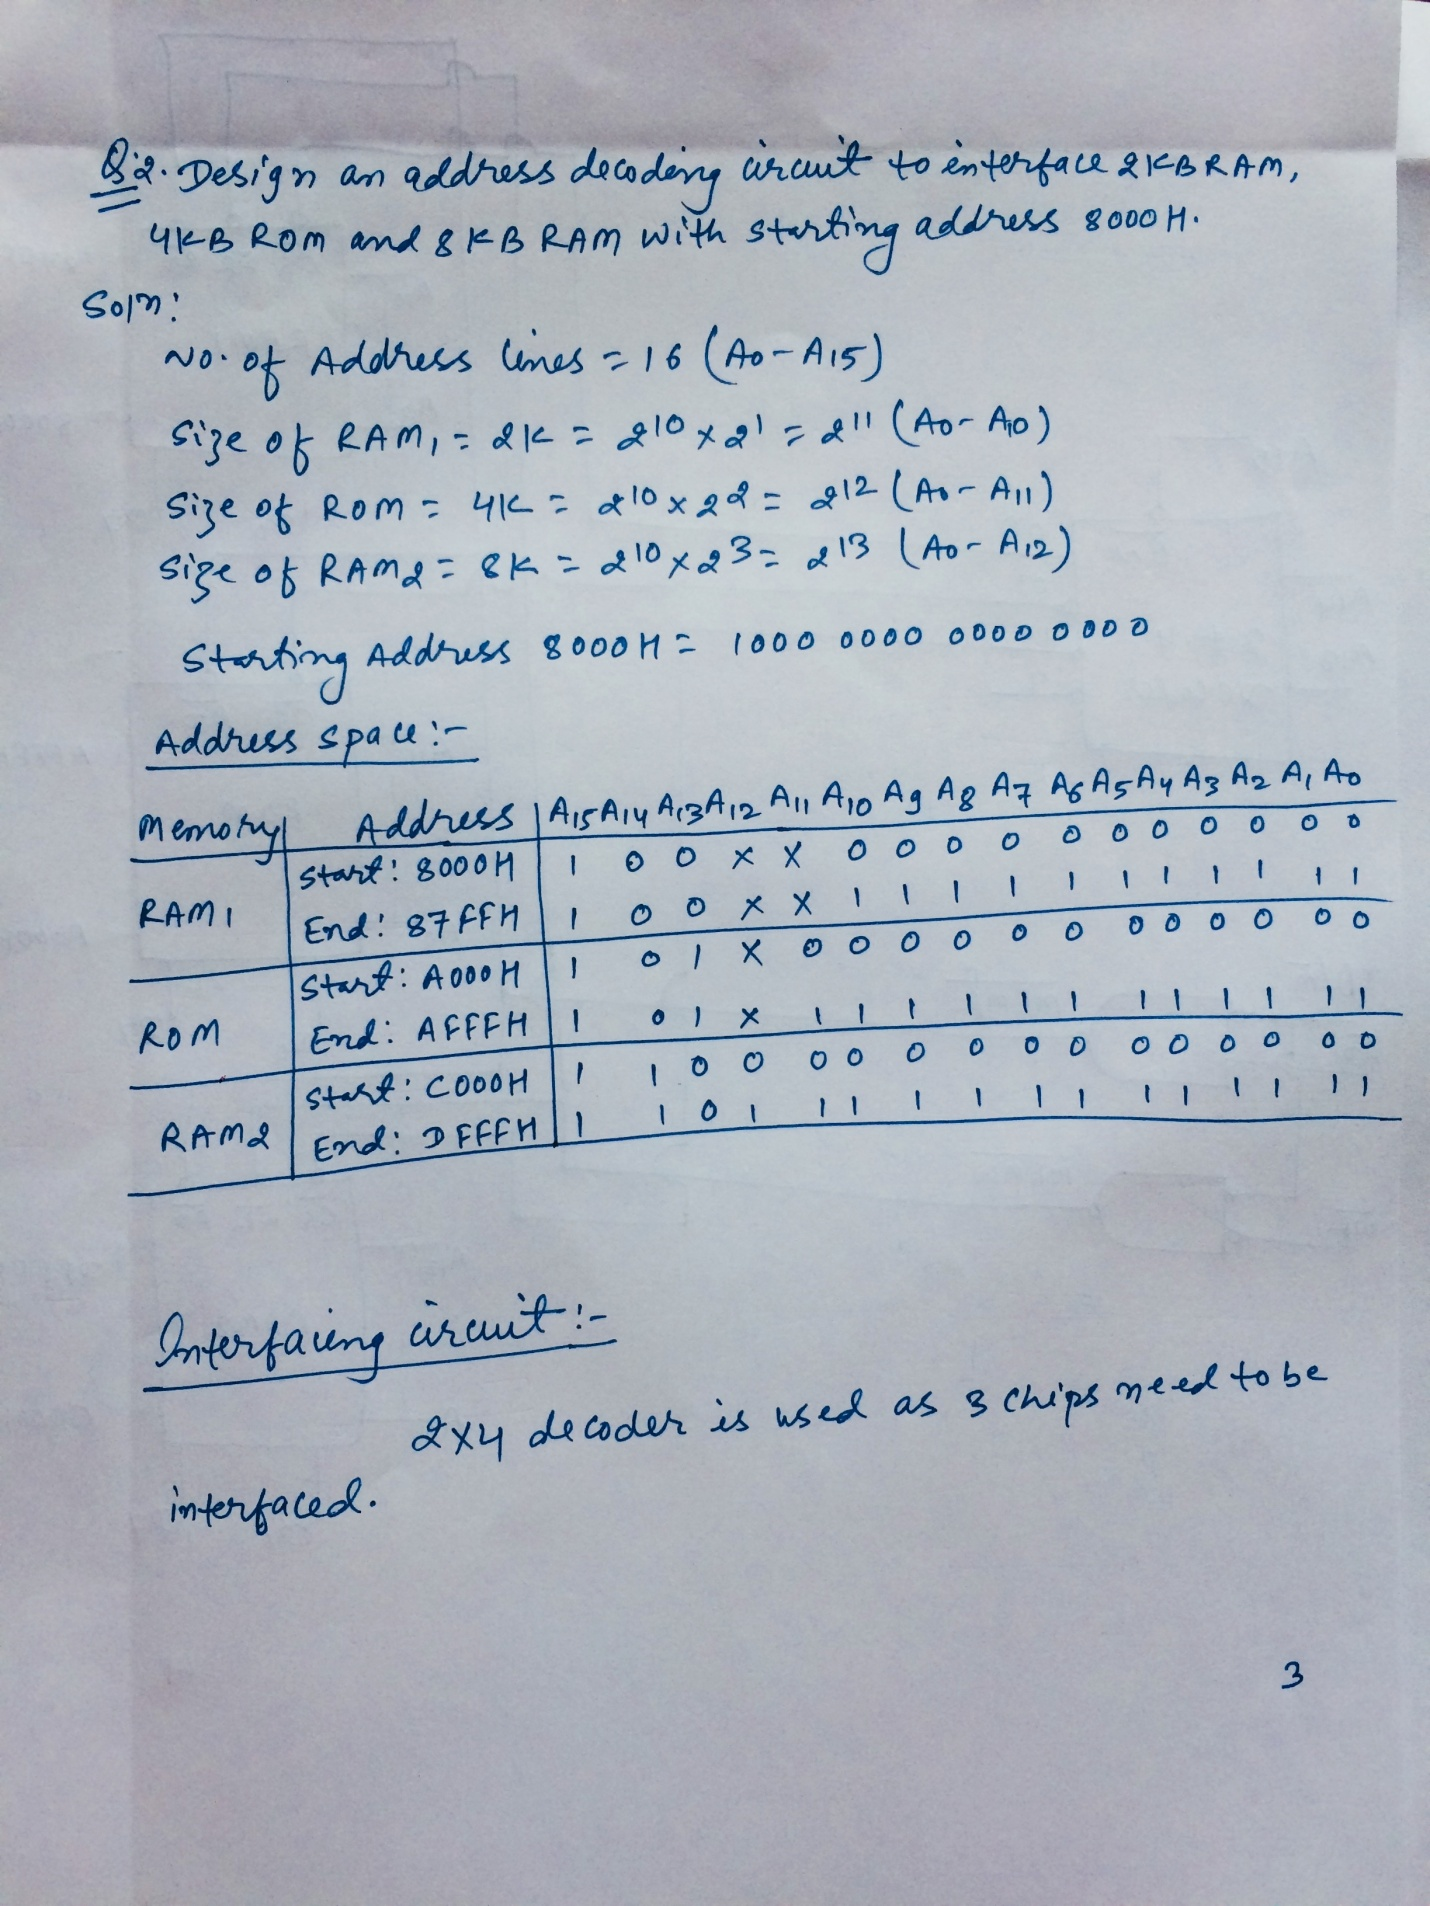 Q.2. Design an address decoding circuit to interface 2KB RAM,
4KB ROM and 8KB RAM with starting address 8000H.
Soln:
No. of Address lines = 16 (A0-A15)
Size of RAM1 = 2K = 2^10 x 2^1 = 2^11 (A0-A10)
Size of ROM = 4K = 2^10 x 2^2 = 2^12 (A0-A11)
Size of RAM2 = 8K = 2^10 x 2^3 = 2^13 (A0-A12)
Starting Address 8000H = 1000 0000 0000 0000
Address space:-
Memory Address A15 A14 A13 A12 A11 A10 A9 A8 A7 A6 A5 A4 A3 A2 A1 A0
RAM1 Start: 8000H 1 0 0 X X 0 0 0 0 0 0 0 0 0 0 0
End: 87FFH 1 0 0 X X 1 1 1 1 1 1 1 1 1 1 1
ROM Start: A000H 1 0 1 X 0 0 0 0 0 0 0 0 0 0 0 0
End: AFFFH 1 0 1 X 1 1 1 1 1 1 1 1 1 1 1 1
RAM2 Start: C000H 1 1 0 0 0 0 0 0 0 0 0 0 0 0 0 0
End: DFFFH 1 1 0 1 1 1 1 1 1 1 1 1 1 1 1 1
Interfacing circuit:-
2x4 decoder is used as 3 chips need to be
interfaced.
3